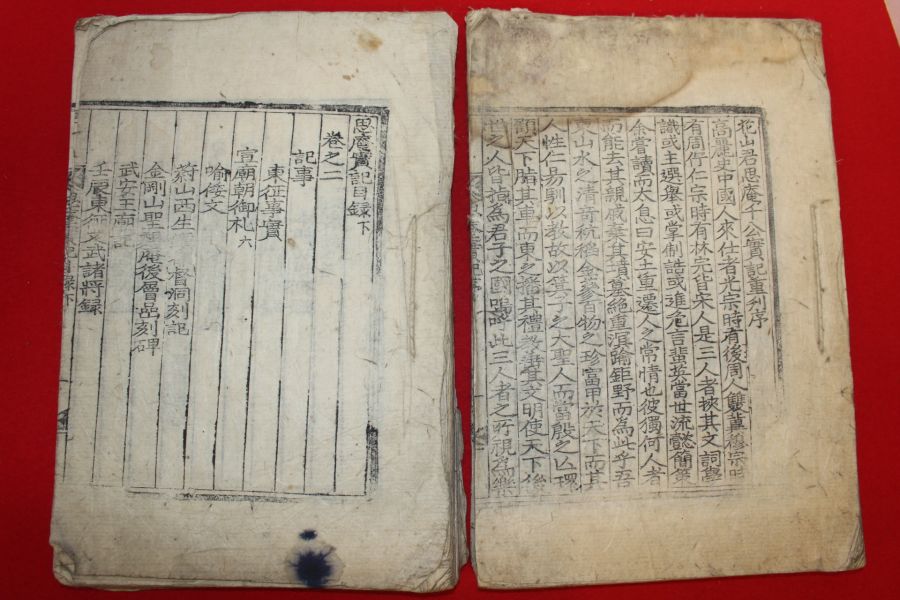 花山君思庵千公實記重刊序
高麗史中國人來仕者光宗時有後周人雙冀穆宗時
有周佇仁宗時有林完皆宋人是三人者挾其文詞學
識或主選舉或掌制誥或進危言蜚英當世流懿簡策
余嘗讀而太息曰安土重遷人之常情也彼獨何人者
而能去其親戚棄其墳墓絶重溟踰鉅野而為此乎吾
東山水之清奇秔稻金蔘百物之珍富甲於天下而其
人性仁易馴以教故以箕子之大聖人而當殷之亾環
顧天下脂其車而東之飭其禮教華其文明使天下後
之人皆稱為君子之國嗚呼此三人者之所視為樂
思庵實記目録下
卷之二
記事
東征事實
宣廟朝御札六
喻倭文
蔚山西生 督洞刻記
金剛山聖 庵後層嵒刻碑
武安王廟記
壬辰東征 文武諸將録